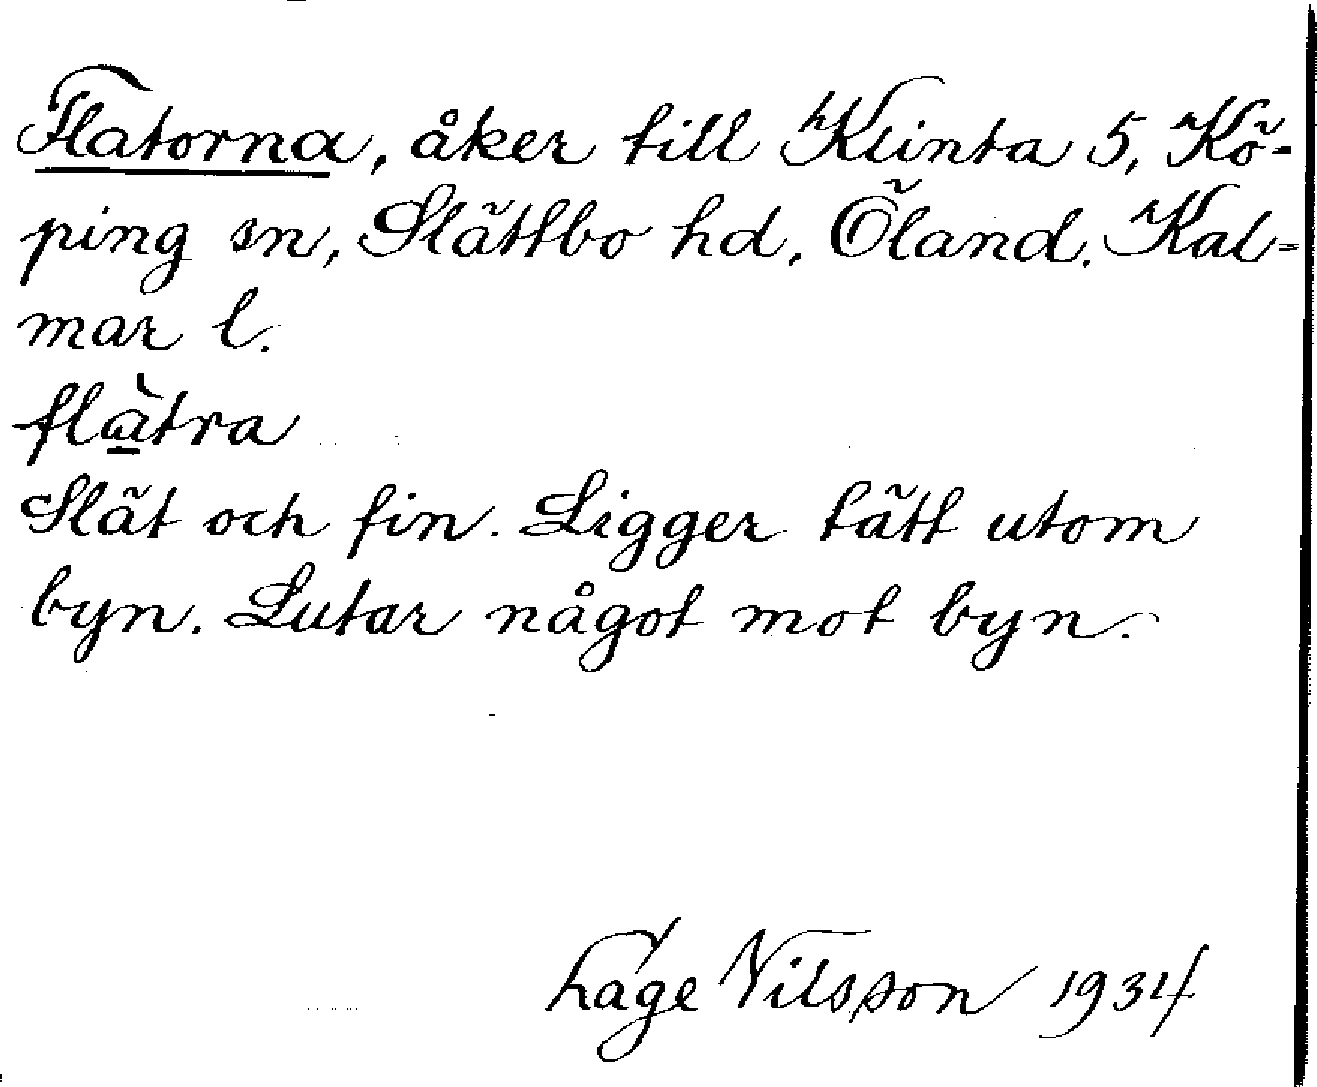 Flatorna, åker till Klinta 5, Kö-
ping sn, Slättbo hd, Öland. Kal-
mar l.
flàtra
Slät och fin. Ligger tätt utom
byn. Lutar något mot byn.
Låge Nilsson 1934